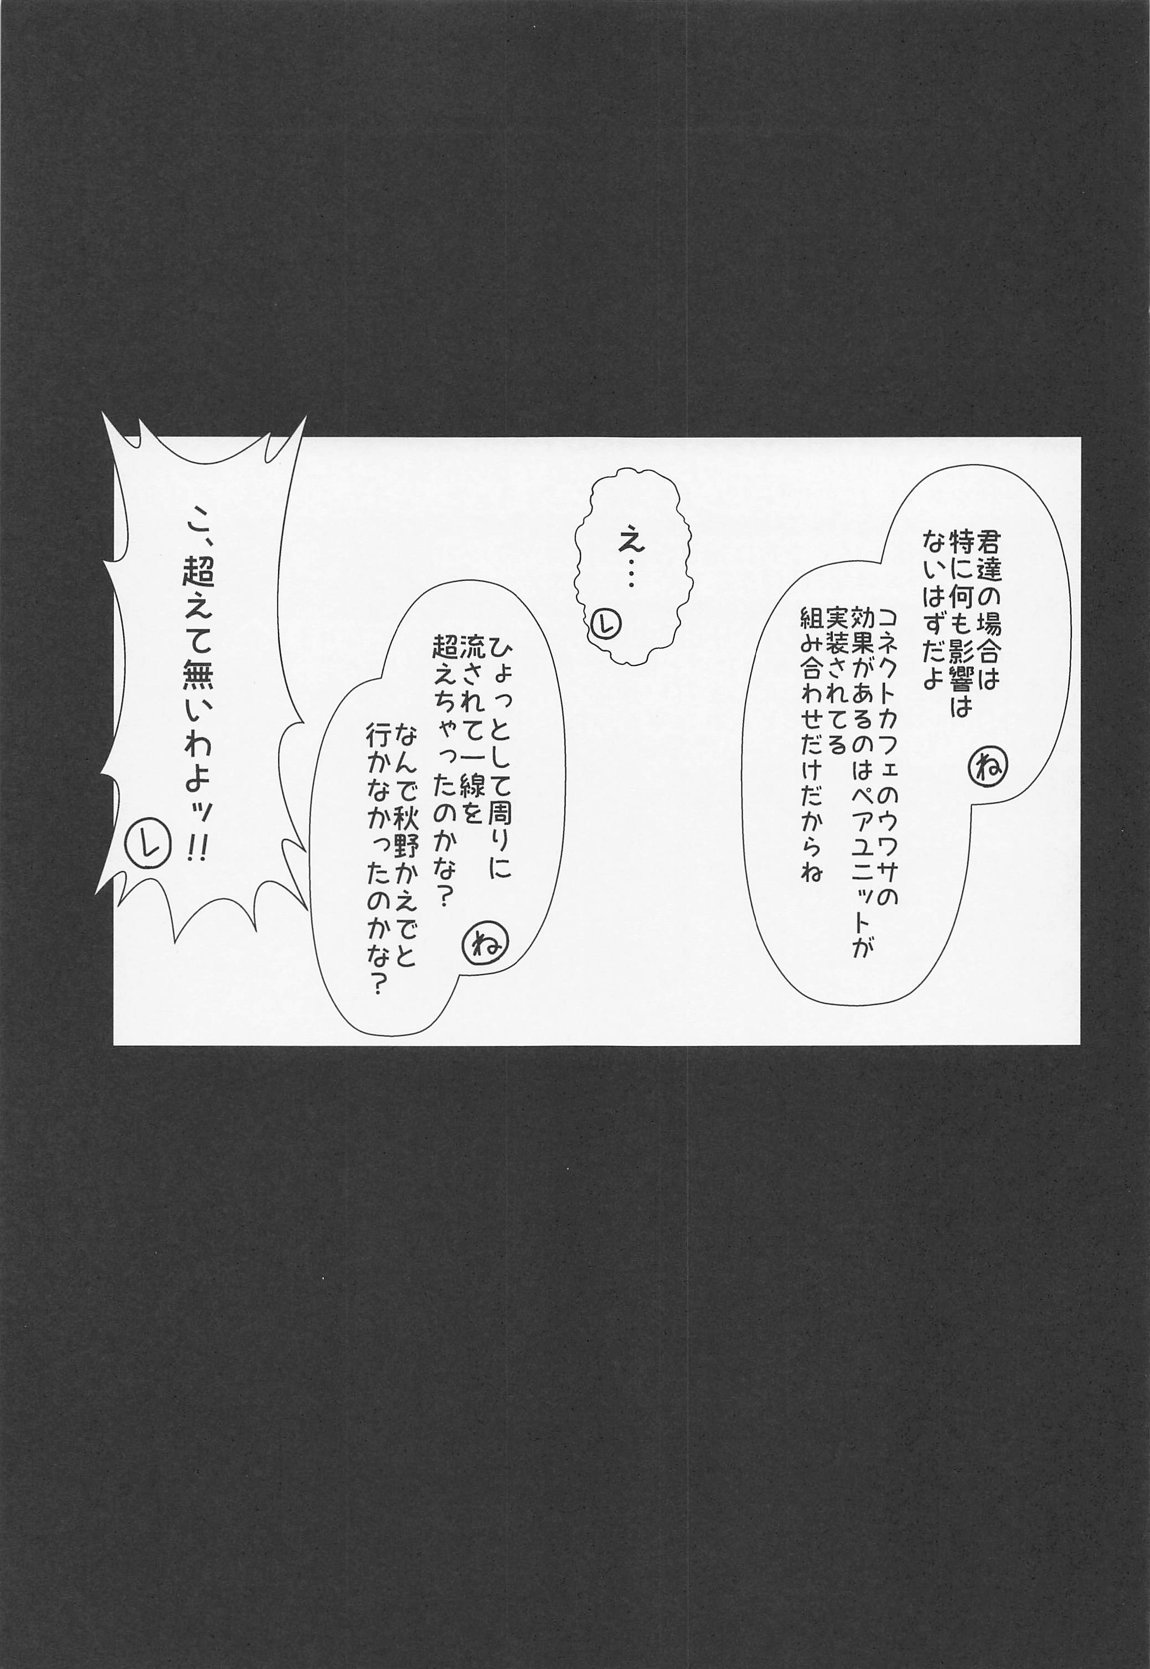 君達の場合は
特に何も影響は
ないはずだよ
ね
コネクトカフェのウワサの
効果があるのはペアユニットが
実装されてる
組み合わせだけだからね
え…
レ
ひょっとして周りに
流されて一線を
超えちゃったのかな？
ね
なんで秋野かえでと
行かなかったのかな？
こ、超えて無いわよッ!!
レ